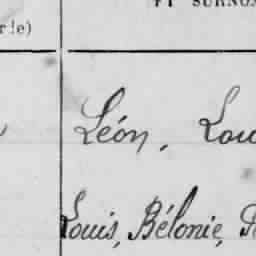 ET SURNOM
r!e)
Léon, Lou
Louis, Bélonie,